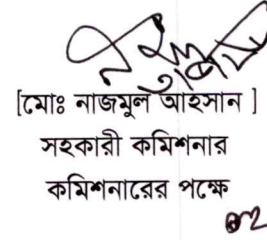 [মোঃ নাজমুল আহসান ]
সহকারী কমিশনার
কমিশনারের পক্ষে